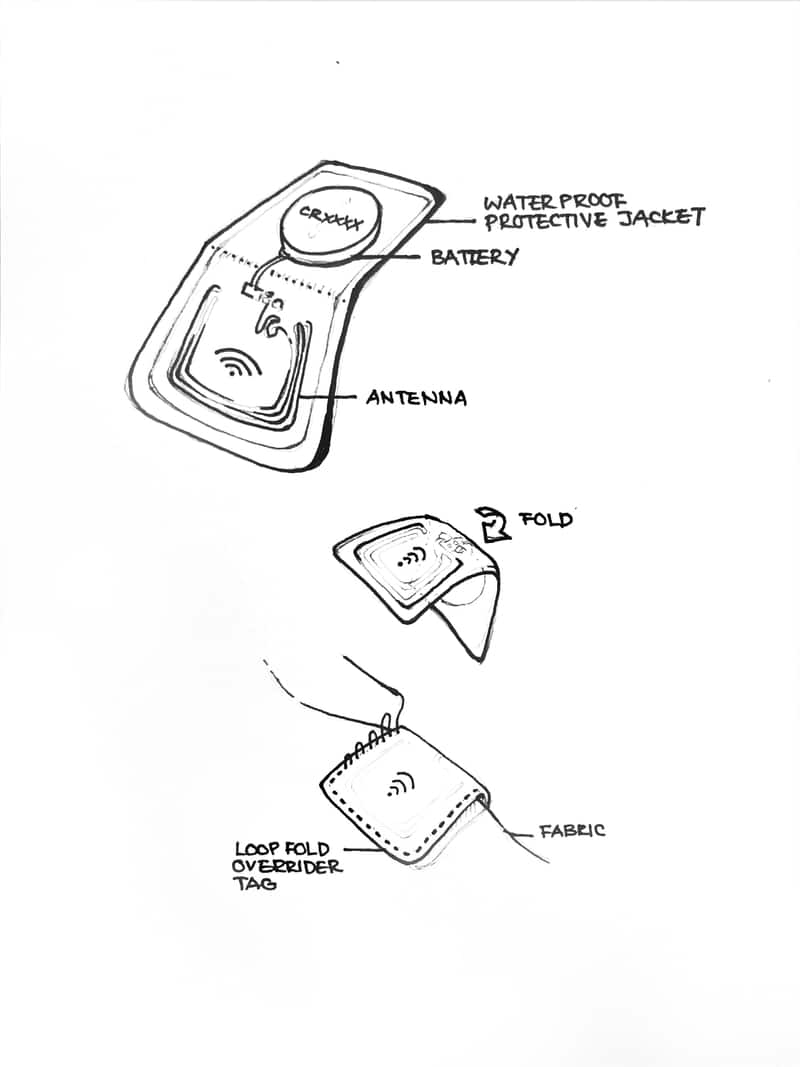 CRXXXX
WATERPROOF
PROTECTIVE JACKET
BATTERY
ANTENNA
FOLD
FABRIC
LOOP FOLD
OVERRIDER
TAG